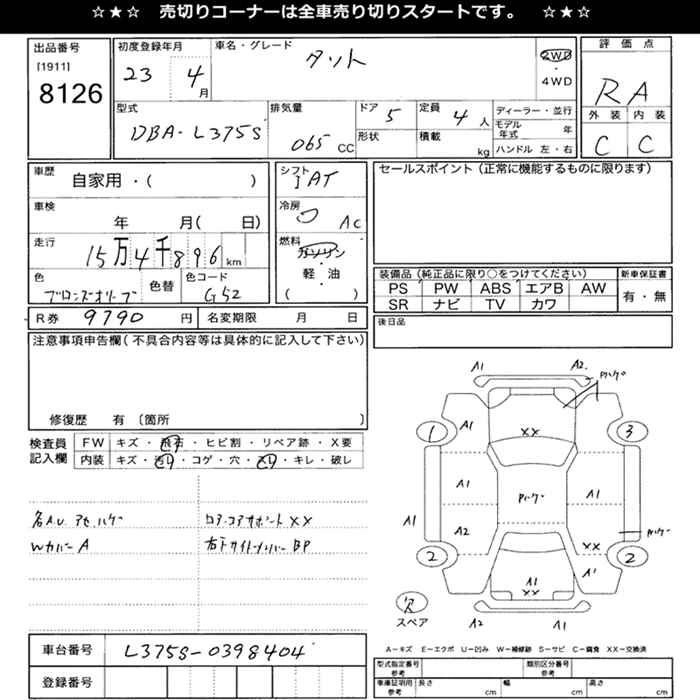 ☆★☆ 売切りコーナーは全車売り切りスタートです。 ☆★☆
出品番号
[1911]
8126
初度登録年月
23 4月
車名・グレード
タント
2WD
・
4WD
評価点
RA
外装 内装
C C
型式
DBA-L375S
排気量
065 CC
ドア 5
形状
定員 4人
積載 kg
ディーラー・並行
モデル年式 年
ハンドル 左・右
車歴
自家用・( )
シフト
IAT
車検
年 月( 日)
冷房
AC
走行
15万4千896km
燃料
ガソリン
・
軽・油
( )
色
ブロンズオリーブ
色替
色コード
G52
R券 9790円
名変期限 月 日
セールスポイント(正常に機能するものに限ります)
装備品(純正品に限り○をつけてください)
PS PW ABS エアB AW
SR ナビ TV カワ
新車保証書
有・無
後日品
注意事項申告欄(不具合内容等は具体的に記入して下さい)
修復歴 有〔箇所 〕
検査員記入欄
FW キズ・飛石・ヒビ割・リペア跡・X要
内装 キズ・汚レ・コゲ・穴・スレ・キレ・破レ
各A.U. アセ.ハゲ
Wカバー A
コア.コアサポート XX
右下サイドメンバー BP
A1 A2
Pハゲ
XX
A1
1 3
A1 Pハゲ A1
A1 A2
Pハゲ
XX
2 2
A1
A1
XX
スペア
A2 A1
A-キズ E-エクボ U-凹み W-補修跡 S-サビ C-腐食 XX-交換済
車台番号 L375S-0398404
登録番号
型式指定番号 参考
類別区分番号 参考
車庫証明用 参考
長さ cm 幅 cm 高さ cm